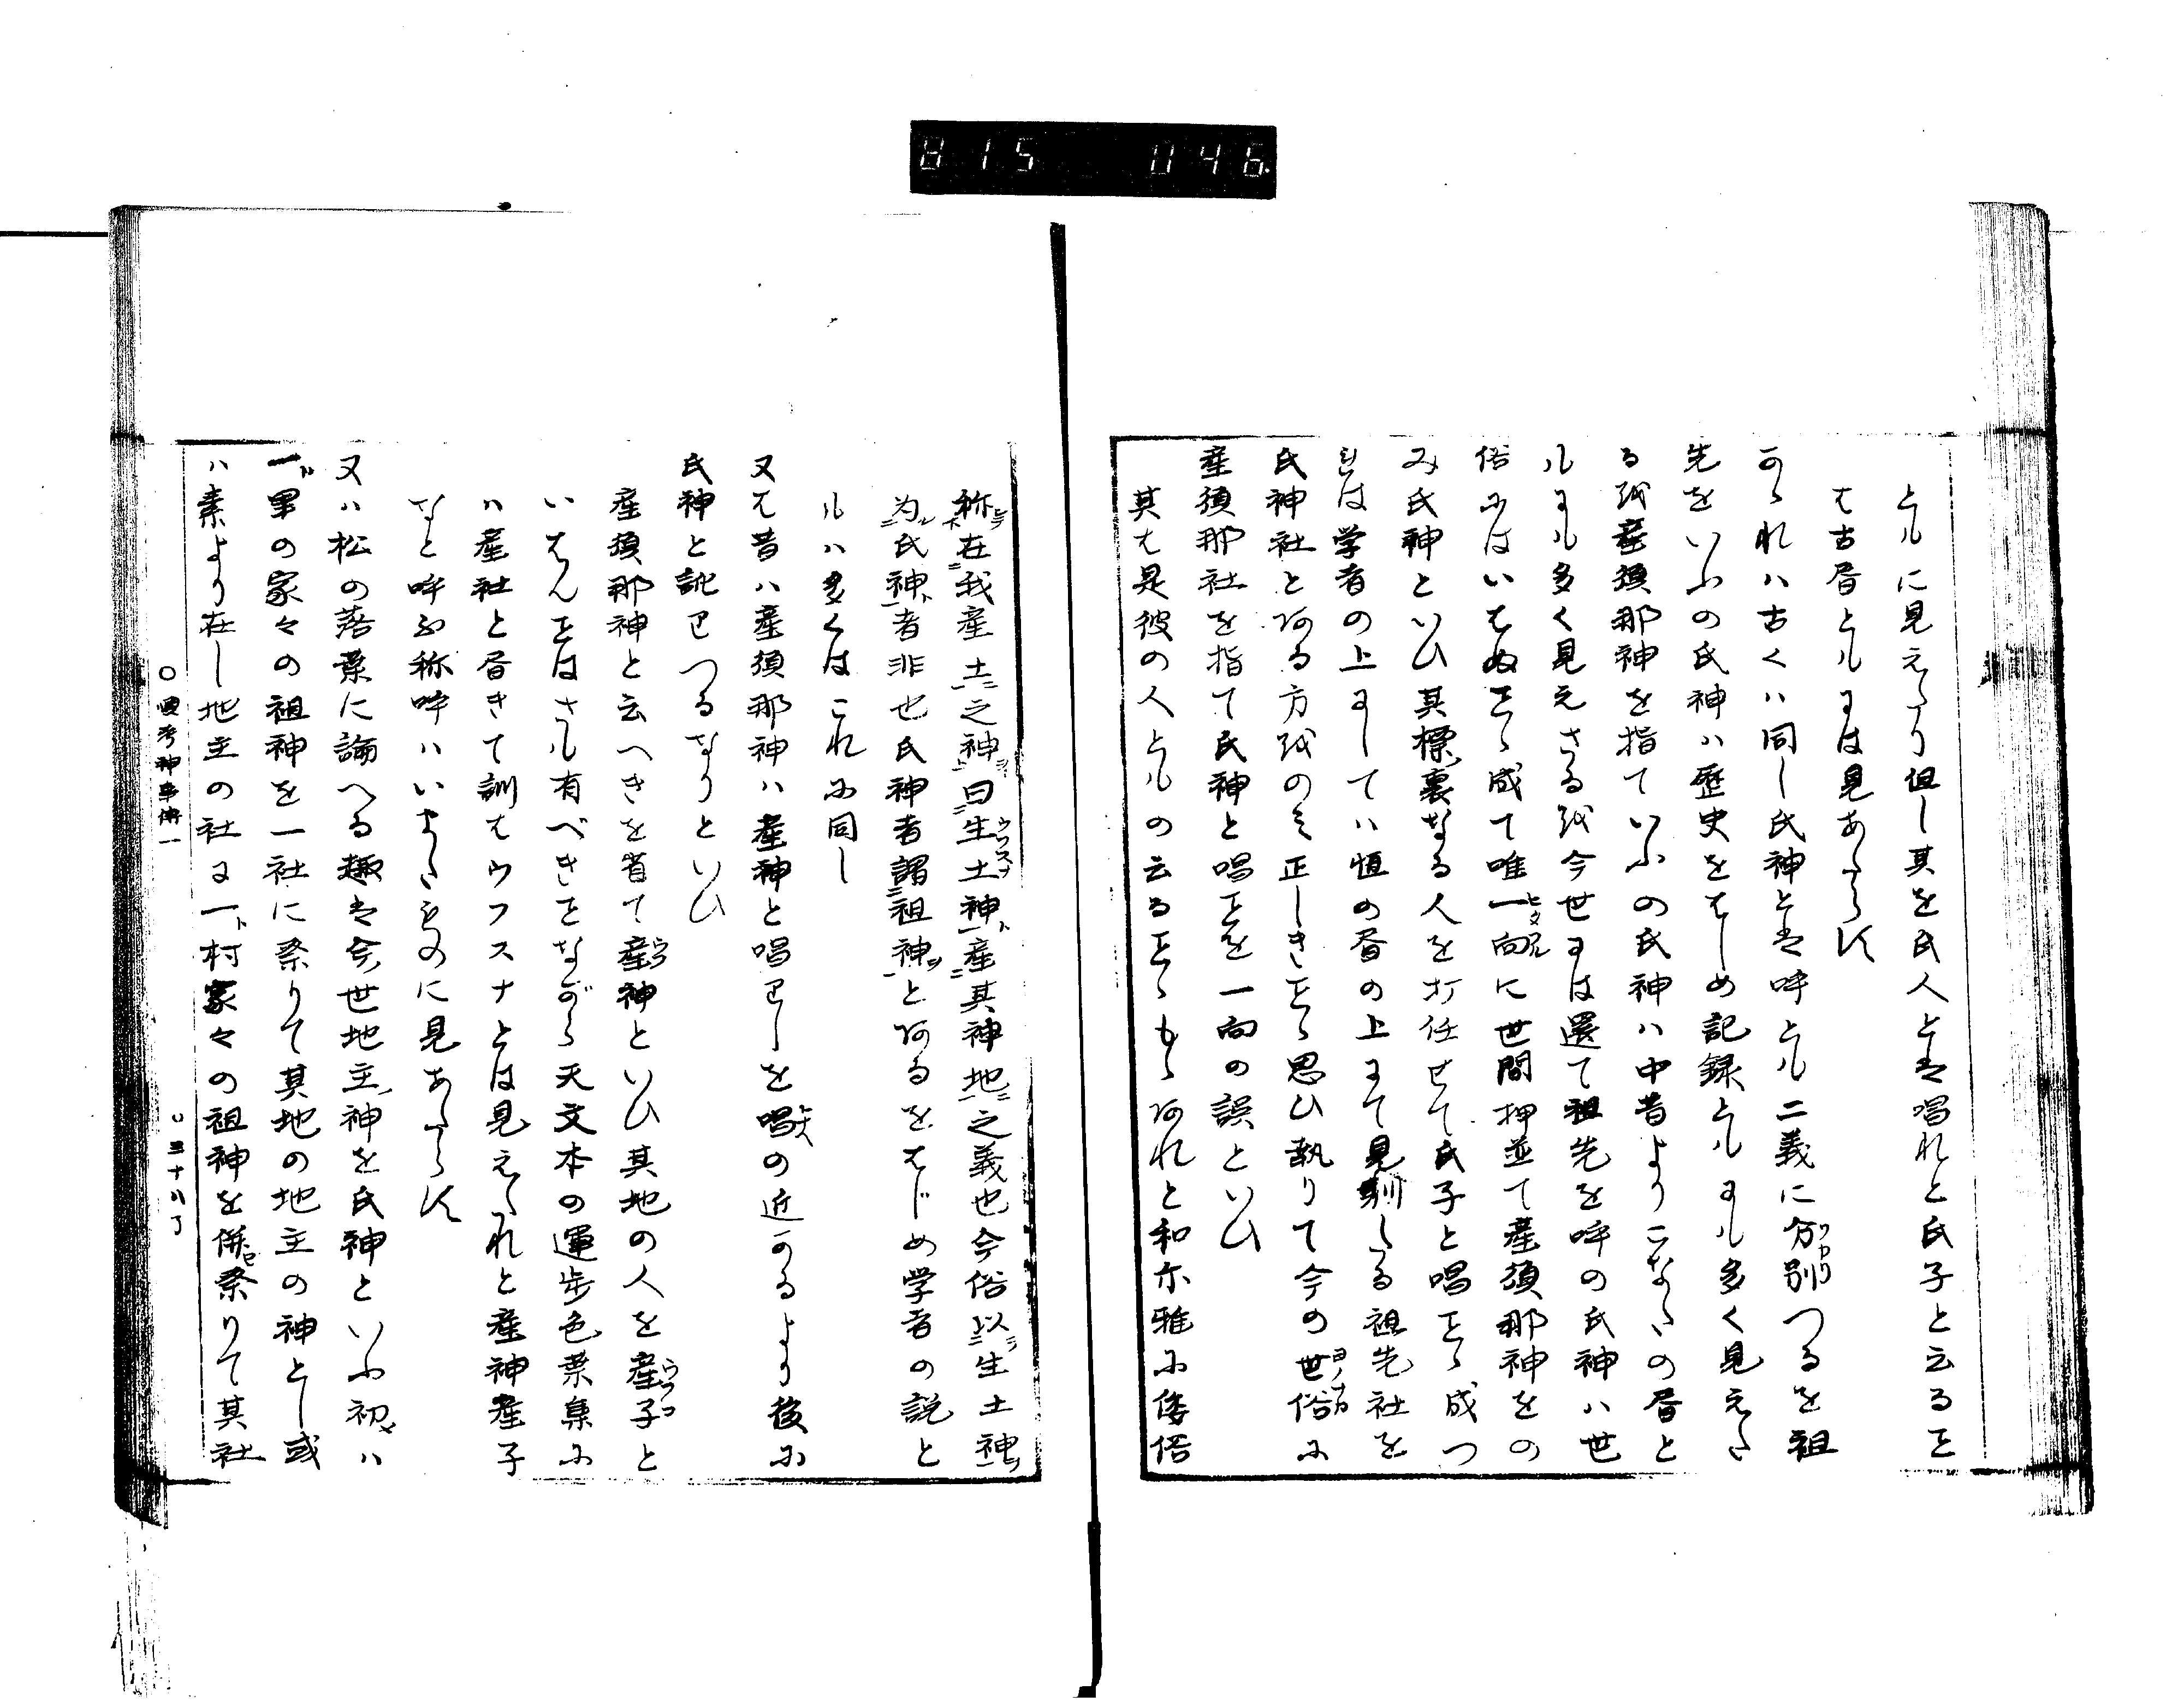 815 046
ともに見えたり但し其を氏人とは唱れと氏子と云ることは
は古書ともには見あたらす
かゝれハ古くハ同し氏神とは呼とも二義に分別つるを祖
先をいふの氏神ハ歴史をはしめ記録ともにも多く見えた
る我産須那神を指ていふの氏神ハ中昔よりこなたの書と
もにも多く見えさる我今世には還て祖先を呼の氏神ハ世
俗にはいはぬこと成て唯一向に世間押並て産須那神をの
み氏神といひ其標裏なる人を打任せて氏子と唱こと成つ
れは学者の上にしてハ恒の書の上にて見馴しる祖先社を
氏神社とある方我のミ正しきこと思ひ執りて今の世俗に
産須那社を指て氏神と唱ことを一向の誤といひ
其は是彼の人ともの云ることもあれと和尓雅に倭俗
称在我産土之神曰生土神産其神地之義也今俗以生土神
為氏神者非也氏神者謂祖神とあるをはじめ学者の説と
もハ多くはこれに同し
又は昔ハ産須那神ハ産神と唱しを唱の近かるより後に
氏神と訛りつるなりといひ
産須那神と云へきを省て産神といひ其地の人を産子と
いはんことはさも有べきことながら天文本の運歩色葉集に
ハ産社と書きて訓はウフスナとは見えたれと産神産子
なと呼ふ称呼ハいまたものに見あたらす
又ハ松の落葉に論へる趣は今世地主神を氏神といふ初ハ
一軍の家々の祖神を一社に祭りて其地の地主の神とし或
ハ素より在し地主の社に一村家々の祖神を併祭りて其社
〇更考神事傳一 〇三十八丁